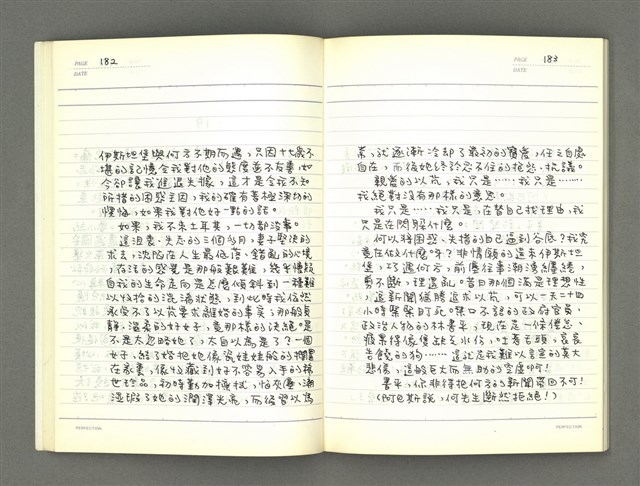 PAGE 182
DATE
伊斯坦堡與何方不期而遇,只因十七歲不
堪的記憶令我對他的態度並不友善,如
今卻讓我進退失據,這才是令我不知
所措的困惑主因,我的確有著極深切的
懊悔,如果我對他好一點的話。
如果,我不來土耳其,一切都沒事。
這沮喪、失志的三個多月,妻子堅決的
求去,沈陷在人生最低落、錯亂的心境,
在活的感覺是那般艱難,幾乎懷疑
自我的生命走向是怎麼傾斜到一種難
以收拾的混濁狀態,到此時我依然
承受不了以苑要求離婚的事實,那般貞
靜、溫柔的好女子,竟那樣的決絕。是
不是太忽略她了,太自以為是了?一個
女子,結了婚把她像瓷娃娃般的擱置
在家裏,像收藏到好不容易入手的稀
世珍品,初時勤加擦拭,怕灰塵、潮
濕毀了她的潤澤光亮,而後習以為
PERFECTION
PAGE 183
DATE
常,就逐漸冷卻了最初的寶愛,任之自處
自在,而後她終於忍不住的抱怨、抗議。
親愛的以苑,我只是……我只是……
我絕對沒有那樣的意思。
我只是……我只是,在替自己找理由,我
只是在開脫什麼。
何以將困惑、失措的自己逼到谷底?我究
竟在做什麼呀?非情願的遠來伊斯坦
堡,巧遇何方,前塵往事潮湧纏繞,
剪不斷,理還亂。昔日那個滿是理想性,
追新聞猶勝追求以苑,可以一天二十四
小時緊緊盯死。噤口不語的政府官員、
政治人物的林書平,現在是一條倦怠、
疲累得像隻垂至水份,吐著舌頭,哀哀
告饒的狗……這就是我難以言宣的莫大
悲傷,這般巨大而無助的空虛啊!
書平,你非得把何方的新聞帶回不可!
(阿巴斯說,何先生斷然拒絕!)
PERFECTION